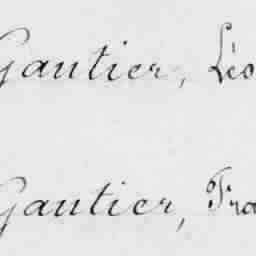 Gautier, Léo
Gautier, Fra